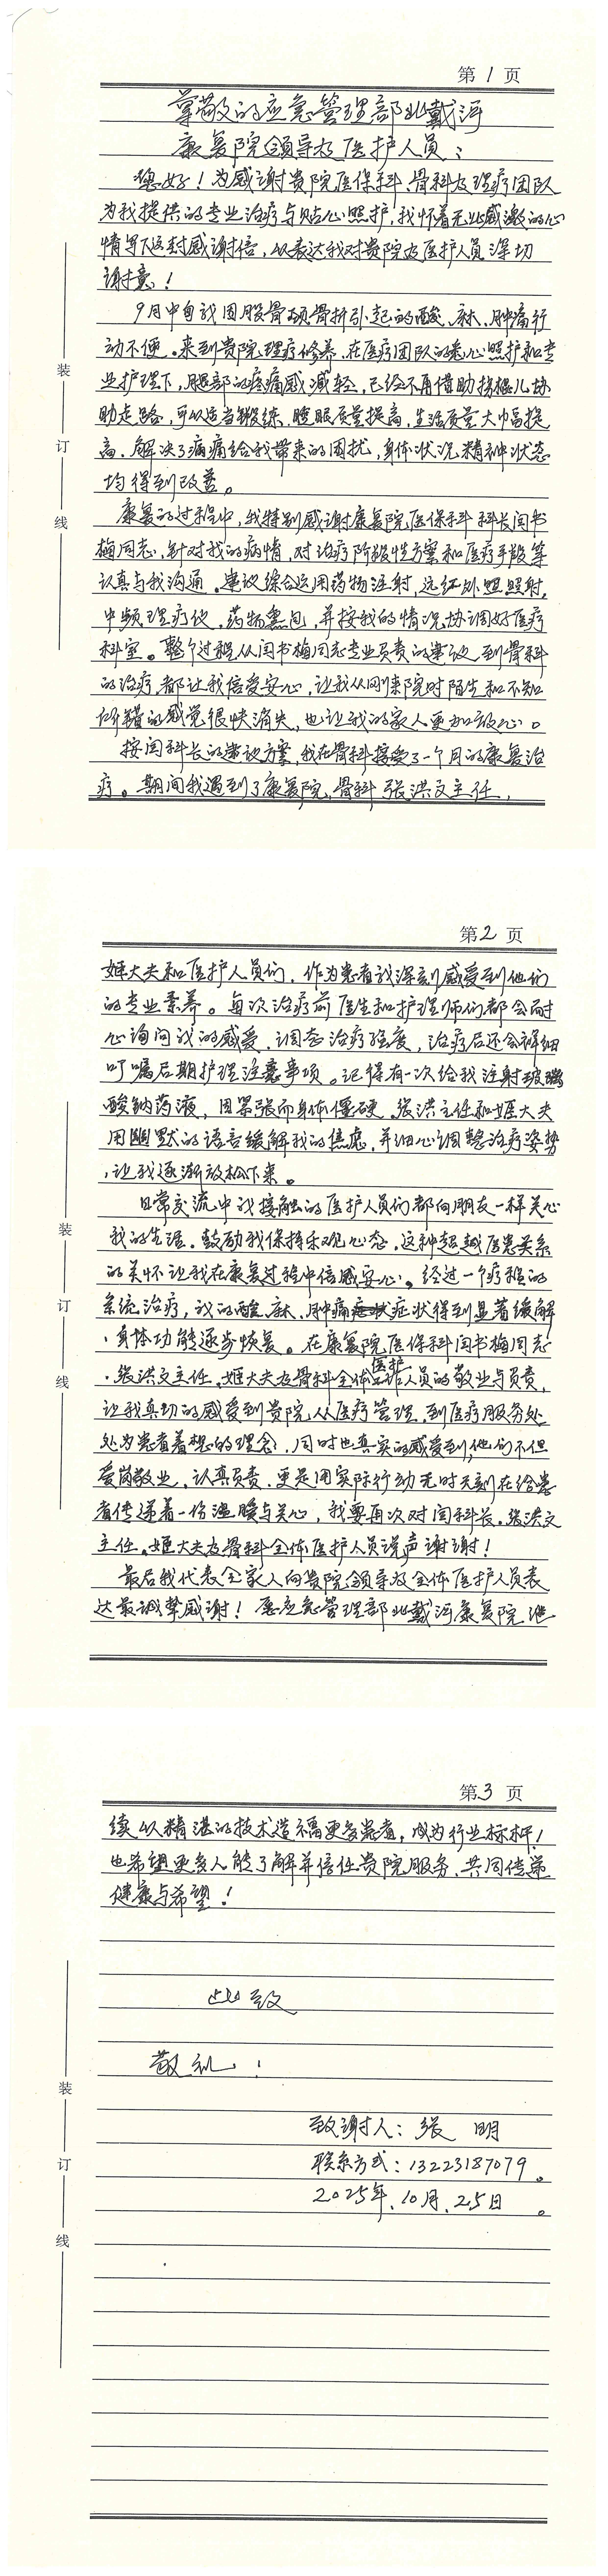 第1页
尊敬的应急管理部北戴河
康复院领导及医护人员：
您好！为感谢贵院医保科、骨科及理疗团队
为我提供的专业治疗与贴心照护，我怀着无比感激的心
情写下这封感谢信，以表达我对贵院及医护人员深切
谢意！
9月中旬我因股骨颈骨折引起的酸、麻、肿痛行
动不便。来到贵院理疗修养，在医疗团队的悉心照护和专
业护理下，腿部的疼痛感减轻，已经不再借助拐棍儿协
助走路，可以适当锻练，睡眠质量提高，生活质量大巾畐提
高，解决了病痛给我带来的困扰，身体状况、精神状态
均得到改善。
康复的过程中，我特别感谢康复院医保科科长闫书
梅同志，针对我的病情，对治疗阶段性方案和医疗手段等
认真与我沟通。建议综合运用药物注射，远红外照射，
中频理疗仪，药物熏包，并按我的情况协调好医疗
科室。整个过程从闫书梅同志专业负责的建议到骨科
的治疗，都让我倍受安心，让我从刚来院时陌生和不知
所措的感觉很快消失，也让我的家人更加放心。
按闫科长的建议方案，我在骨科接受了一个月的康复治
疗。期间我遇到了康复院，骨科，张洪文主任，
装
订
线
第2页
姬大夫和医护人员们，作为患者我深刻感受到他们
的专业素养。每次治疗前医生和护理师们都会耐
心询问我的感受，调态治疗强度，治疗后还会详细
叮嘱后期护理注意事项。记得有一次给我注射玻璃
酸钠药液，因紧张而身体僵硬。张洪主任和姬大夫
用幽默的语言缓解我的焦虑，并细心调整治疗姿势
，让我逐渐放松下来。
日常交流中我接触的医护人员们都向朋友一样关心
我的生活，鼓励我保持乐观心态，这种超越医患关系
的关怀让我在康复过程中倍感安心。经过一个疗程的
系统治疗，我的酸、麻、肿痛症状得到显著缓解
，身体功能逐步恢复。在康复院医保科闫书梅同志
、张洪文主任、姬大夫及骨科全体医护人员的敬业与负责，
让我真切的感受到贵院从医疗管理，到医疗服务处
处为患者着想的理念，同时也真实的感受到，他们不但
爱岗敬业，认真负责，更是用实际行动无时无刻在给患
者传递着一份温暖与关心，我要再次对闫科长，张洪文
主任、姬大夫及骨科全体医护人员说声谢谢！
最后我代表全家人向贵院领导及全体医护人员表
达最诚挚感谢！愿应急管理部北戴河康复院继
装
订
线
第3页
续以精湛的技术造福更多患者，成为行业标杆！
也希望更多人能了解并信任贵院服务，共同传递
健康与希望！
此致
敬礼！
致谢人：张 明
联系方式：13223187079。
2025年、10月、25日。
装
订
线